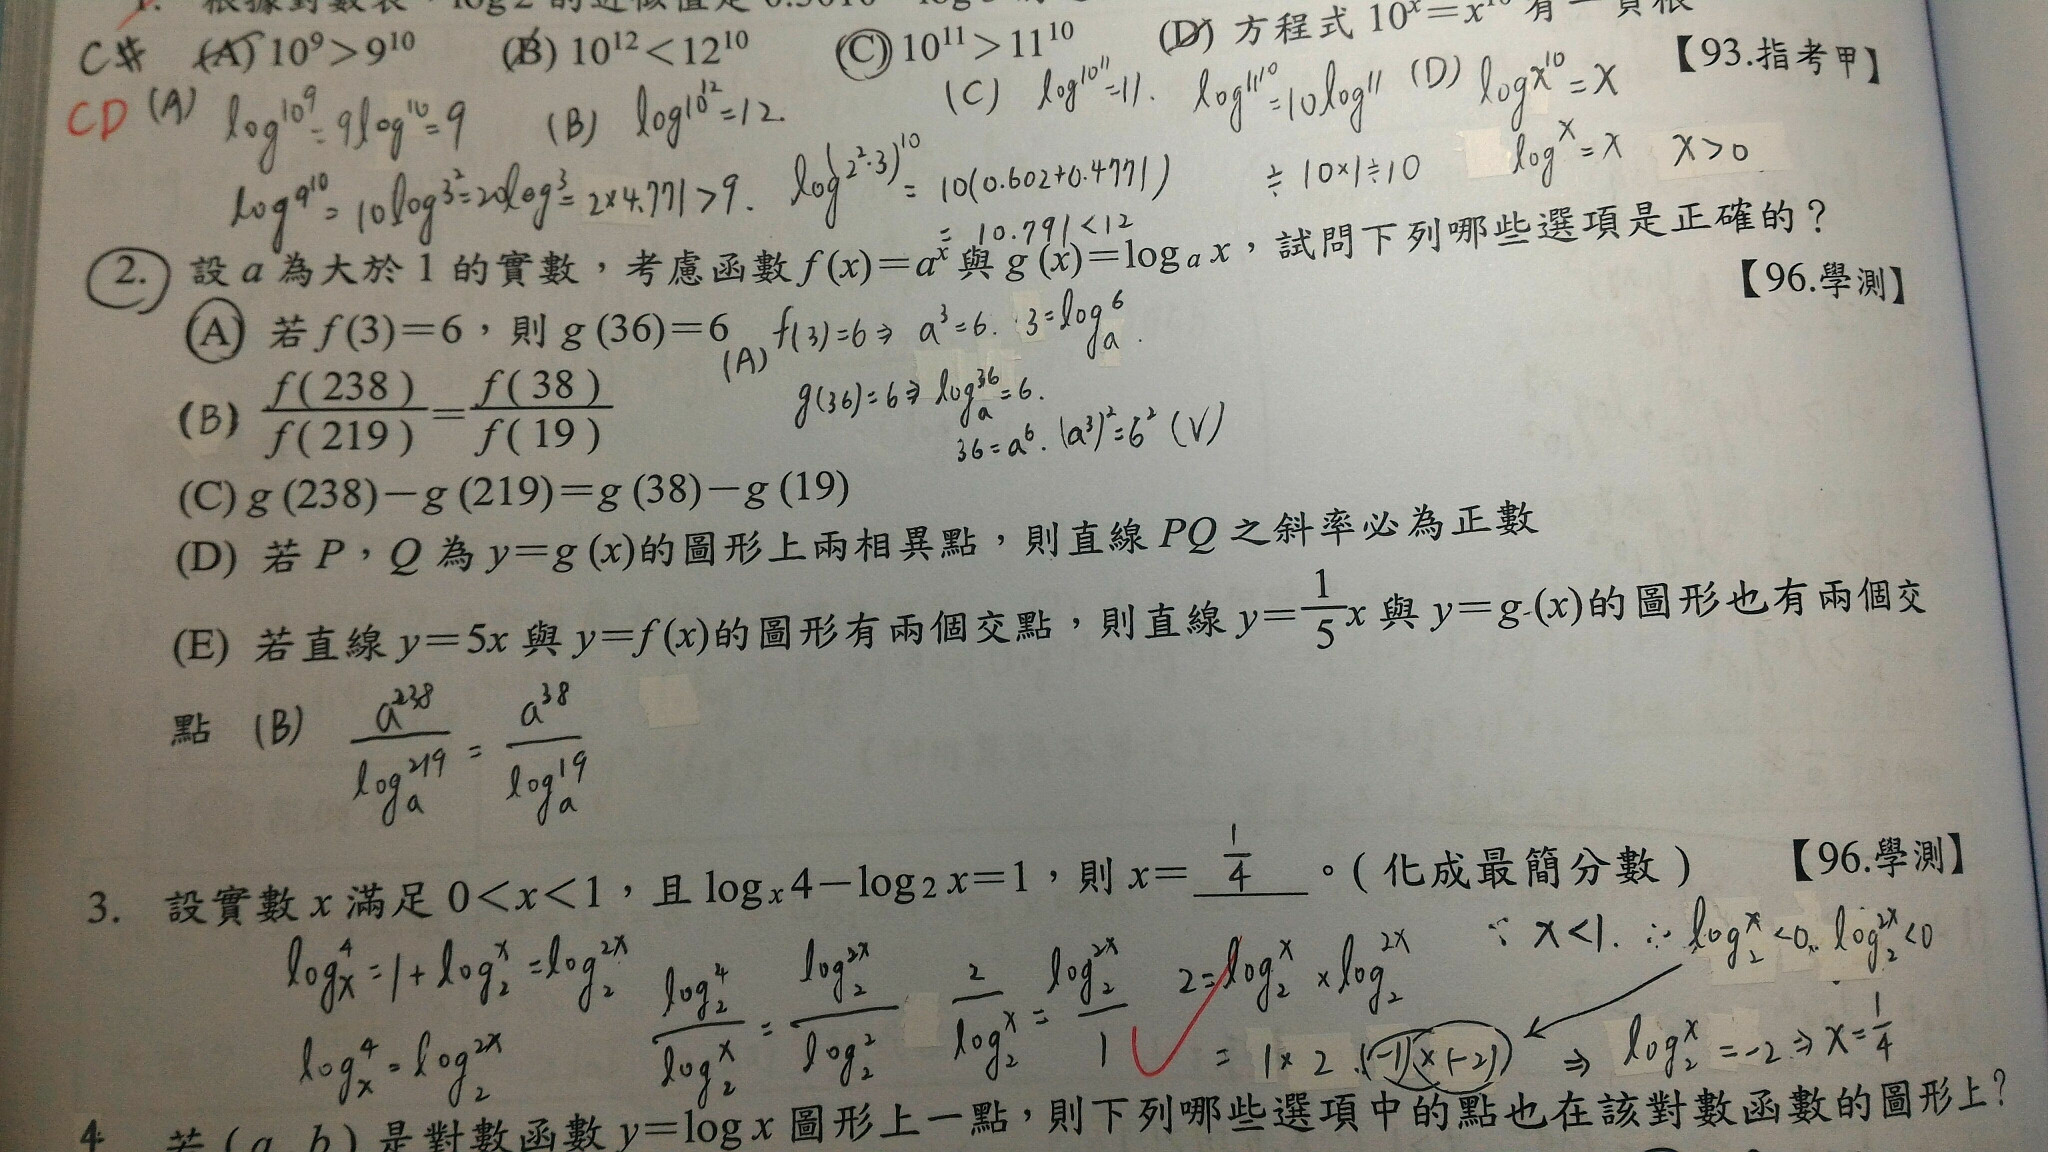 1. 根據對數表，log 2 的近似值是 0.3010
C# (A) 10⁹＞9¹⁰ (B) 10¹²＜12¹⁰ (C) 10¹¹＞11¹⁰ (D) 方程式 10ˣ＝x¹⁰ 有一負根
【93.指考甲】
CD (A) log10⁹=9log10=9 (B) log10¹²=12. (C) log10¹¹=11. log11¹⁰=10log11 (D) logx¹⁰=x
log9¹⁰=10log3²=20log3=2×4.771>9. log(2²·3)¹⁰=10(0.602+0.4771) ≑ 10×1≑10 logˣ=x x>0
=10.791<12
2. 設 a 為大於 1 的實數，考慮函數 f (x)＝aˣ 與 g (x)＝logₐ x，試問下列哪些選項是正確的？
【96.學測】
(A) 若 f (3)＝6，則 g (36)＝6
(A) f(3)=6⇒ a³=6. 3=logₐ6.
g(36)=6⇒ logₐ36=6.
36=a⁶. (a³)²=6² (V)
(B) f ( 238 )／f ( 219 )＝f ( 38 )／f ( 19 )
(C) g (238)－g (219)＝g (38)－g (19)
(D) 若 P，Q 為 y＝g (x)的圖形上兩相異點，則直線 PQ 之斜率必為正數
(E) 若直線 y＝5x 與 y＝f (x)的圖形有兩個交點，則直線 y＝1/5 x 與 y＝g (x)的圖形也有兩個交
點 (B) a²³⁸/logₐ219 = a³⁸/logₐ19
3. 設實數 x 滿足 0＜x＜1，且 logₓ 4－log₂ x＝1，則 x＝ 1/4 。( 化成最簡分數 ) 【96.學測】
logₓ4=1+log₂x=log₂2x log₂4/log₂x = log₂2x/log₂2 2/log₂x = log₂2x/1 2=log₂x×log₂2x ∵ x<1. ∴ log₂x<0. log₂2x<0
logₓ4=log₂2x =1×2.(-1)×(-2) ⇒ log₂x=-2⇒x=1/4
4. 若 ( a , b ) 是對數函數 y＝log x 圖形上一點，則下列哪些選項中的點也在該對數函數的圖形上？